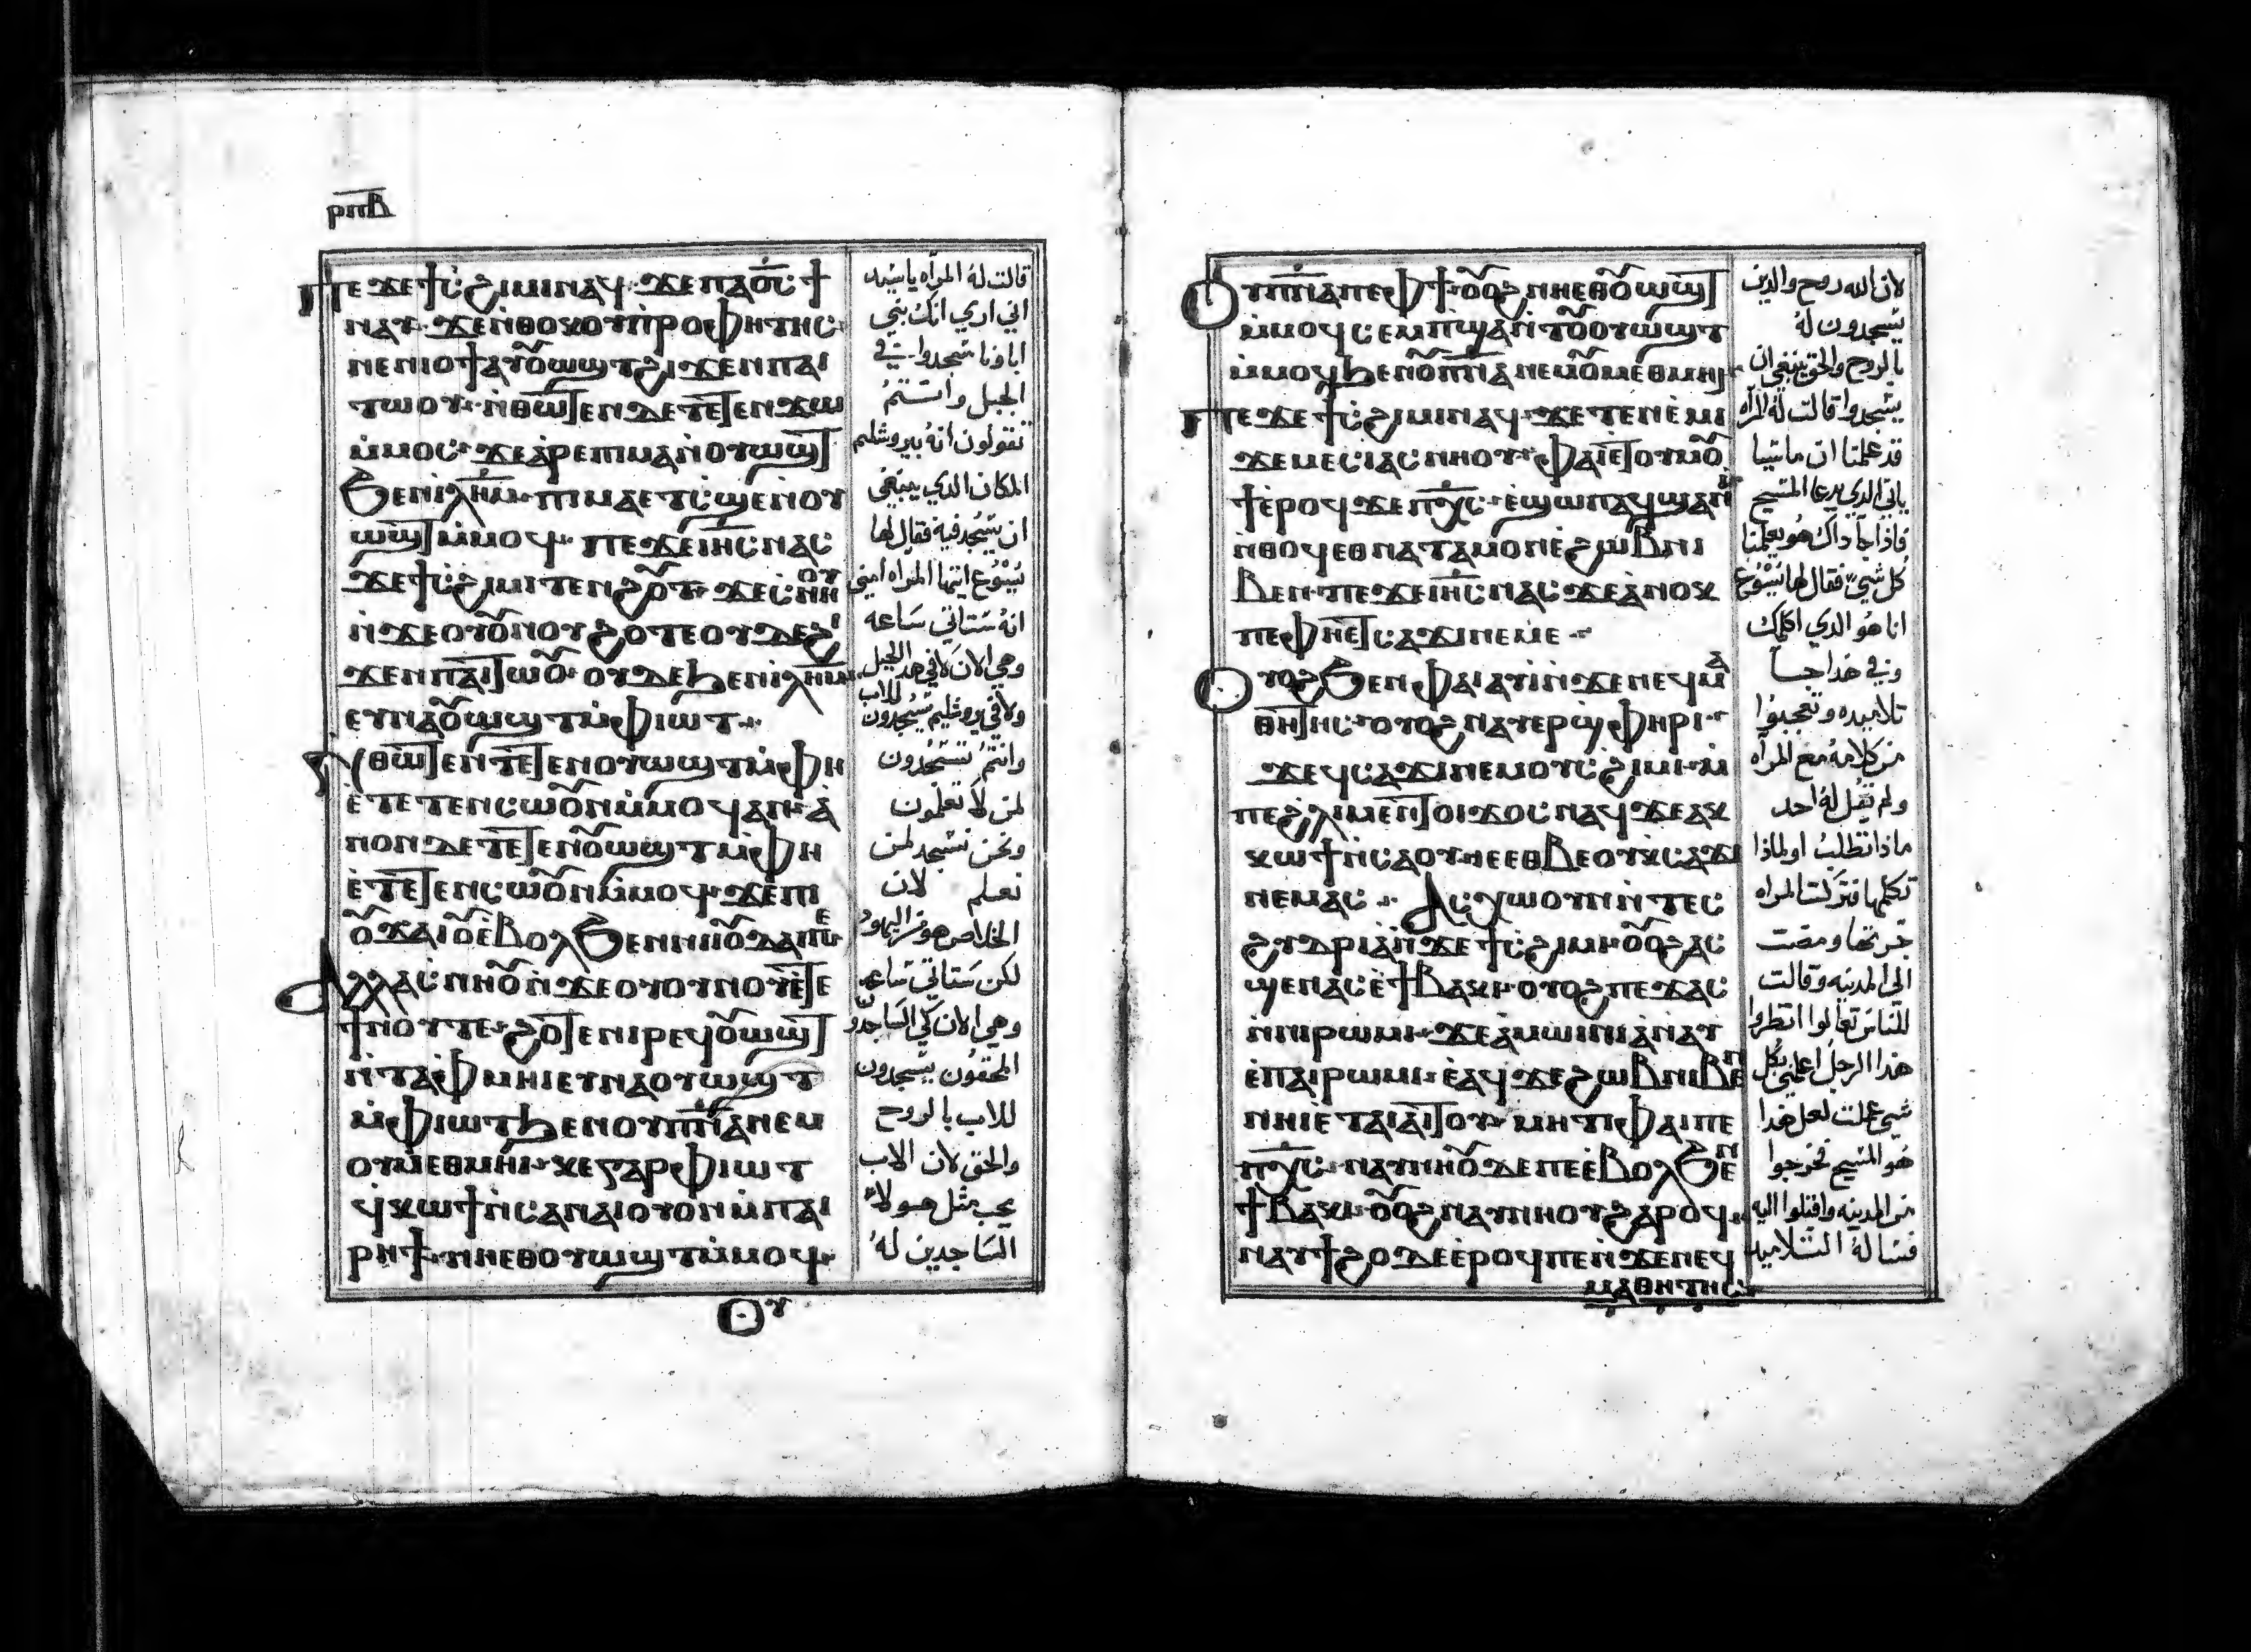 ⲣⲡⲃ
ⲡⲉϫⲉϯⲥϩⲓⲙⲓⲛⲁϥ ϫⲉⲡⲁⲟ̅ⲥ̅ϯ
ⲛⲁⲩ ϫⲉⲛ̇ⲑⲟⲕⲟⲩⲡ̇ⲣⲟⲫⲏⲧⲏⲥ
ⲛⲉⲛⲓⲟϯⲁⲩⲟⲩⲱϣⲧϩⲓϫⲉⲛⲡⲁⲓ
ⲧⲱⲟⲩ ⲛ̇ⲑⲱⲧⲉⲛⲇⲉⲧⲉⲧⲉⲛϫⲱ
ⲙ̇ⲙⲟⲥ ϫⲉⲁ̇ⲣⲉⲡⲙⲁⲛ̇ⲟⲩⲱϣⲧ
ϧⲉⲛⲓⲗ̅ⲏ̅ⲙ̅ ⲡⲓⲙⲁⲉⲧⲥ̇ϣⲉⲛ̇ⲟⲩ
ⲱϣⲧⲙ̇ⲙⲟϥ ⲡⲉϫⲉⲓ̅ⲏ̅ⲥ̅ⲛⲁⲥ
ϫⲉϯⲥ̇ϩⲓⲙⲓⲧⲉⲛϩⲟⲩⲧ ϫⲉⲥ̇ⲛⲏⲟⲩ
ⲛ̇ϫⲉⲟⲩⲟⲩⲛⲟⲩϩⲟⲧⲉⲟⲩⲇⲉϩⲓ
ϫⲉⲛⲡⲁⲓⲧⲱⲟⲩ ⲟⲩⲇⲉϧⲉⲛⲓⲗ̅ⲏ̅ⲙ̅
ⲉⲩⲛⲁⲟⲩⲱϣⲧⲙ̇ⲫⲓⲱⲧ
ⲛ̇ⲑⲱⲧⲉⲛⲧⲉⲧⲉⲛⲟⲩⲱϣⲧⲙ̇ⲫⲏ
ⲉ̇ⲧⲉⲧⲉⲛⲥⲱⲟⲩⲛⲙ̇ⲙⲟϥⲁⲛ ⲁ̇
ⲛⲟⲛⲇⲉⲧⲉⲧⲉⲛⲟⲩⲱϣⲧⲙ̇ⲫⲏ
ⲉ̇ⲧⲉⲧⲉⲛⲥⲱⲟⲩⲛⲙ̇ⲙⲟϥ ϫⲉⲡⲓ
ⲟⲩϫⲁⲓⲟⲩⲉ̇ⲃⲟⲗϧⲉⲛⲛⲓⲓⲟⲩⲇⲁⲓⲡⲉ
ⲁⲗⲗⲁⲥ̇ⲛⲏⲟⲩⲛ̇ϫⲉⲟⲩⲟⲩⲛⲟⲩⲉ̇ⲧⲉ
ϯⲛⲟⲩⲧⲉ ϩⲟⲧⲉⲛⲓⲣⲉϥⲟⲩⲱϣⲧ
ⲛ̇ⲧⲁⲫⲙⲏⲓⲉⲩⲛⲁⲟⲩⲱϣⲧ
ⲙ̇ⲫⲓⲱⲧϧⲉⲛⲟⲩⲡ̅ⲛ̅ⲁ̅ⲛⲉⲙ
ⲟⲩⲙⲉⲑⲙⲏⲓ ⲕⲉⲅⲁⲣⲫⲓⲱⲧ
ϥ̇ⲕⲱϯⲛ̇ⲥⲁⲛⲁⲓⲟⲩⲟⲛⲙ̇ⲡⲁⲓ
ⲣⲏϯ ⲛⲏⲉⲑⲟⲩⲱϣⲧⲙ̇ⲙⲟϥ
قالت له المراه يا سيد
اني اري انك نبي
اباونا سجدوا في
الجبل وانتم
تقولون انه بيروشليم
المكان الذي ينبغي
ان يسجد فيه فقال لها
يسوع ايتها المراه امني
انه ستاتي ساعه
وهي الان لا في هذا الجبل
ولا في يروشليم تسجدون للاب
وانتم تسجدون
لمن لا تعلمون
ونحن نسجد لمن
نعلم لان
الخلاص هو من اليهود
لكن ستاتي ساعه
وهي الان لكي الساجدو
المحقون يسجدون
للاب بالروح
والحق لان الاب
يحب مثل هولاء
الساجدين له
ⲟⲩ
ⲟⲩⲡ̅ⲛ̅ⲁ̅ⲡⲉⲫϯ ⲟⲩⲟϩⲛⲏⲉⲑⲟⲩⲱϣⲧ
ⲙ̇ⲙⲟϥⲥⲉⲙⲡϣⲁⲛ̇ⲧⲟⲩⲟⲩⲱϣⲧ
ⲙ̇ⲙⲟϥϧⲉⲛⲟⲩⲡ̅ⲛ̅ⲁ̅ⲛⲉⲙⲟⲩⲙⲉⲑⲙⲏⲓ
ⲡⲉϫⲉϯⲥ̇ϩⲓⲙⲓⲛⲁϥ ϫⲉⲧⲉⲛⲉ̇ⲙⲓ
ϫⲉⲙⲉⲥⲓⲁⲥⲛⲏⲟⲩ ⲫⲁⲓⲉ̇ⲧⲟⲩⲙⲟⲩ
ϯⲉ̇ⲣⲟϥϫⲉⲡ̅ⲭ̅ⲥ̅ ⲉ̇ϣⲱⲡⲁϥϣⲁⲛⲓ̀
ⲛ̇ⲑⲟϥⲉⲑⲛⲁⲧⲁⲙⲟⲛⲉ̇ϩⲱⲃⲛⲓ
ⲃⲉⲛ ⲡⲉϫⲉⲓ̅ⲏ̅ⲥ̅ⲛⲁⲥϫⲉⲁ̇ⲛⲟⲕ
ⲡⲉⲫⲏⲉⲧⲥⲁϫⲓⲛⲉⲙⲉ
ⲟⲩⲟϩϧⲉⲛⲫⲁⲓⲁⲩⲓ̀ⲛ̇ϫⲉⲛⲉϥⲙⲁ
ⲑⲏⲧⲏⲥ ⲟⲩⲟϩⲛⲁⲩⲉⲣϣ̇ⲫⲏⲣⲓ
ϫⲉϥⲥⲁϫⲓⲛⲉⲙⲟⲩⲥ̇ϩⲓⲙⲓ ⲙ̇
ⲡⲉϩⲗⲓⲙⲉⲛⲧⲟⲓϫⲟⲥⲛⲁϥϫⲉⲁⲕ
ⲕⲱϯⲛ̇ⲥⲁⲟⲩ ⲓⲉⲉⲑⲃⲉⲟⲩⲕⲥⲁϫⲓ
ⲛⲉⲙⲁⲥ ⲁⲥⲭⲱⲟⲩⲛⲛ̇ⲧⲉⲥ
ϩⲩⲇⲣⲓⲁⲛ̇ϫⲉϯⲥ̇ϩⲓⲙⲓ ⲟⲩⲟϩⲁⲥ
ϣⲉⲛⲁⲥⲉ̇ϯⲃⲁⲕⲓ ⲟⲩⲟϩⲡⲉϫⲁⲥ
ⲛ̇ⲛⲓⲣⲱⲙⲓ ϫⲉⲁ̇ⲙⲱⲓⲛⲓⲁ̇ⲛⲁⲩ
ⲉ̇ⲡⲁⲓⲣⲱⲙⲓ ⲉ̇ⲁϥϫⲉϩⲱⲃⲛⲓⲃⲉⲛ
ⲛⲏⲓⲉⲧⲁⲓⲁⲓⲧⲟⲩ ⲙⲏⲧⲓⲫⲁⲓⲡⲉ
ⲡ̅ⲭ̅ⲥ̅ ⲛⲁⲩⲛⲏⲟⲩⲇⲉⲡⲉⲉ̇ⲃⲟⲗϧⲉⲛ
ϯⲃⲁⲕⲓ ⲟⲩⲟϩⲛⲁⲩⲛⲏⲟⲩϩⲁⲣⲟϥ
ⲛⲁⲩϯϩⲟⲇⲉⲉ̇ⲣⲟϥⲡⲉⲛ̇ϫⲉⲛⲉϥ
ⲙⲁⲑⲏⲧⲏⲥ
لان الله روح والذين
يسجدون له
بالروح والحق ينبغي ان
يسجدوا قالت له المراه
قد علمنا ان ماسيا
ياتي الذي يدعا المسيح
فاذا جا ذاك هو يعلمنا
كل شي فقال لها يسوع
انا هو الذي اكلمك
وفي هذا جا
تلاميذه وتعجبوا
من كلامه مع المراه
ولم يقل له احد
ماذا تطلب او لماذا
تكلمها فتركت المراه
جرتها ومضت
الى المدينه وقالت
للناس تعالوا انظروا
هذا الرجل اعلمني بكل
شي عملت لعل هذا
هو المسيح فخرجوا
من المدينه واقبلوا اليه
فساله التلاميد